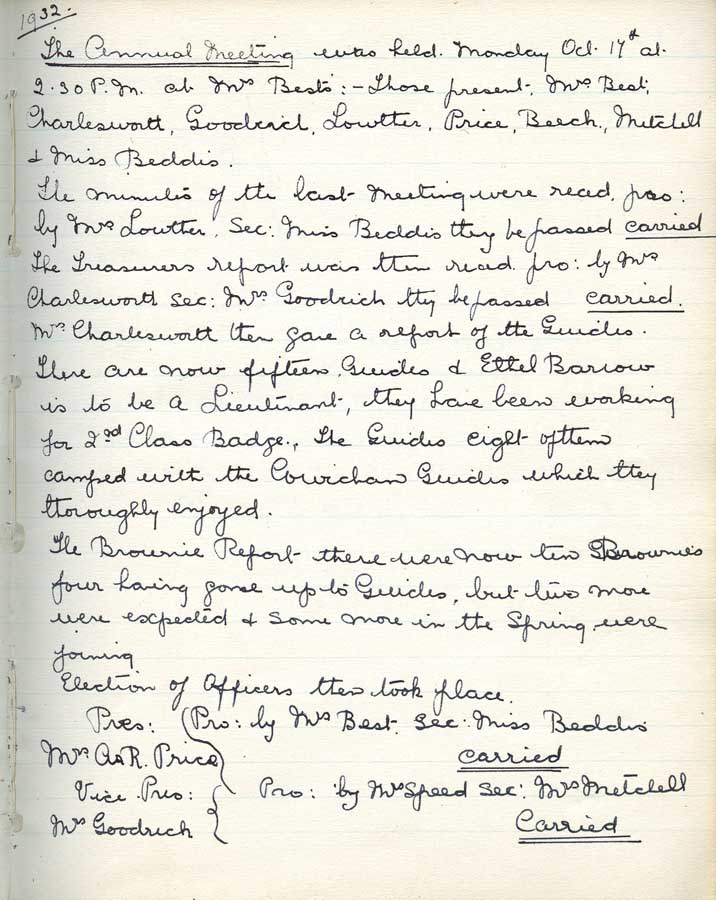 1932.
The Annual Meeting was held Monday Oct. 17th at
2.30 P.M. at Mrs Bests :- Those present, Mrs Best,
Charlesworth, Goodrich, Lowther, Price, Beech, Mitchell
& Miss Beddis.
The minutes of the last Meeting were read, pro:
by Mrs Lowther, Sec: Miss Beddis they be passed carried
The Treasurers report was then read pro: by Mrs
Charlesworth Sec: Mrs. Goodrich they be passed carried.
Mrs Charlesworth then gave a report of the Guides.
There are now fifteen Guides & Ethel Barrow
is to be a Lieutinant, they have been working
for 2nd Class Badge., The Guides eight of them
camped with the Cowichan Guides which they
thoroughly enjoyed.
The Brownie Report there were now ten Brownies
four having gone up to Guides, but two more
were expected & some more in the Spring were
joining
Election of Officers then took place.
Pres: (Pro: by Mrs Best. Sec: Miss Beddis
Mrs R. Price carried
Vice Pres: { Pro: by Mrs Speed Sec: Mrs Metchell
Mrs Goodrich Carried